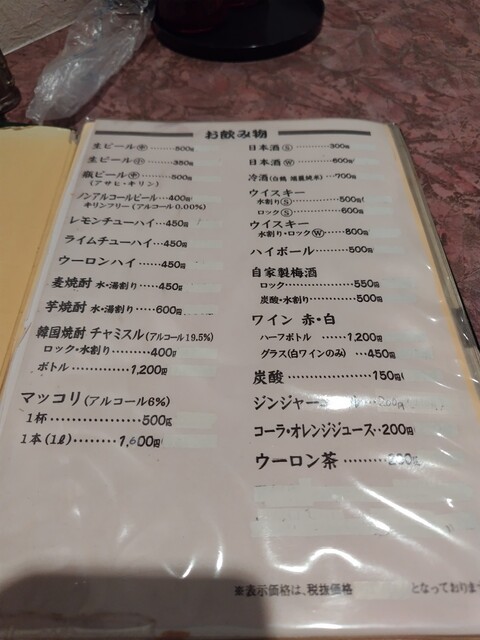 お飲み物
生ビール㊥……500円
生ビール㊙……350円
瓶ビール㊥……500円
(アサヒ・キリン)
ノンアルコールビール……400円
キリンフリー(アルコール0.00%)
レモンチューハイ…450円
ライムチューハイ…450円
ウーロンハイ……450円
麦焼酎 水・湯割り…450円
芋焼酎 水・湯割り…600円
韓国焼酎 チャミスル(アルコール19.5%)
ロック・水割り………400円
ボトル…………1,200円
マッコリ(アルコール6%)
1杯…………500円
1本(1ℓ)………1,600円
日本酒Ⓢ………300円
日本酒Ⓦ………600円
冷酒(白鶴 純米)…700円
ウイスキー
水割りⓈ…………500円
ロックⓈ…………600円
ウイスキー
水割り・ロックⓌ……800円
ハイボール……500円
自家製梅酒
ロック……………550円
炭酸・水割り………500円
ワイン 赤・白
ハーフボトル ……1,200円
グラス(白ワインのみ) …450円
炭酸……………150円
ジンジャー
コーラ・オレンジジュース…200円
ウーロン茶………200円
※表示価格は、税抜価格 となっております